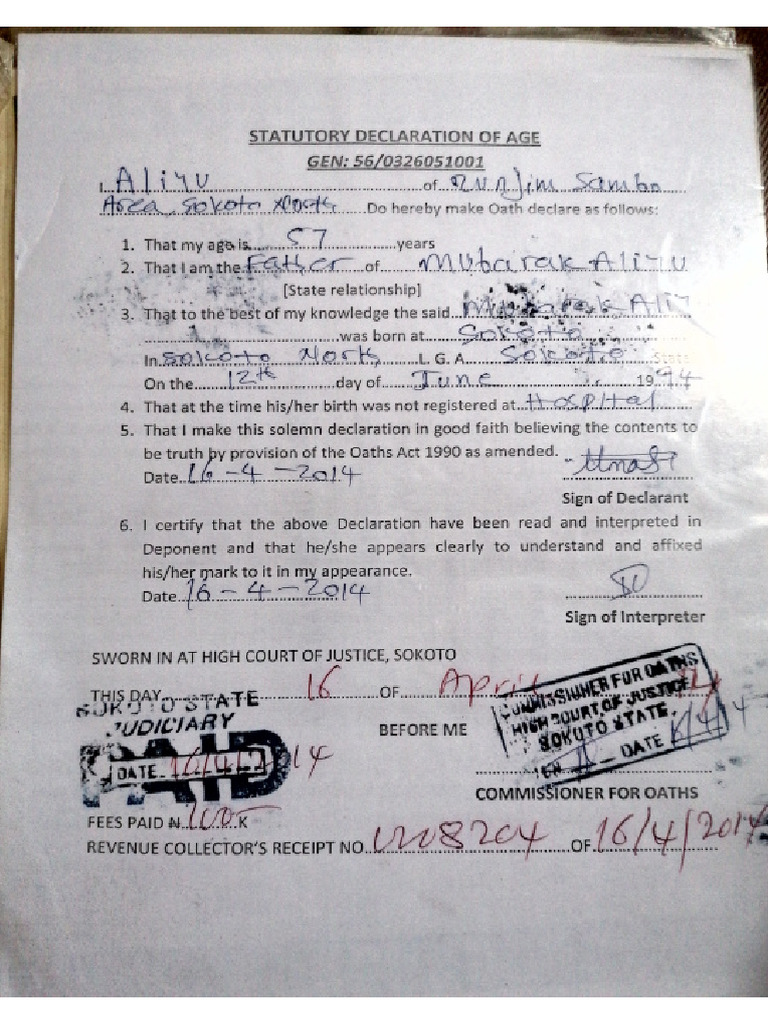 STATUTORY DECLARATION OF AGE
GEN: 56/0326051001
I Aliyu of Runjin Sambo
Area, Sokoto North Do hereby make Oath declare as follows:
1. That my age is 57 years
2. That I am the Father of Mubarak Aliyu
[State relationship]
3. That to the best of my knowledge the said Mubarak Aliy
was born at Sokoto
In Sokoto North L. G. A. Sokoto State
On the 12th day of June 1994
4. That at the time his/her birth was not registered at Hospital
5. That I make this solemn declaration in good faith believing the contents to
be truth by provision of the Oaths Act 1990 as amended.
Date 16-4-2014
Sign of Declarant
6. I certify that the above Declaration have been read and interpreted in
Deponent and that he/she appears clearly to understand and affixed
his/her mark to it in my appearance.
Date 16-4-2014
Sign of Interpreter
SWORN IN AT HIGH COURT OF JUSTICE, SOKOTO
THIS DAY 16 OF April
SOKOTO STATE
JUDICIARY
PAID
DATE 16/4/2014
BEFORE ME
COMMISSIONER FOR OATHS
HIGH COURT OF JUSTICE
SOKOTO STATE.
DATE 16/4/14
COMMISSIONER FOR OATHS
FEES PAID ₦ K
REVENUE COLLECTOR'S RECEIPT NO. OF 16/4/2014